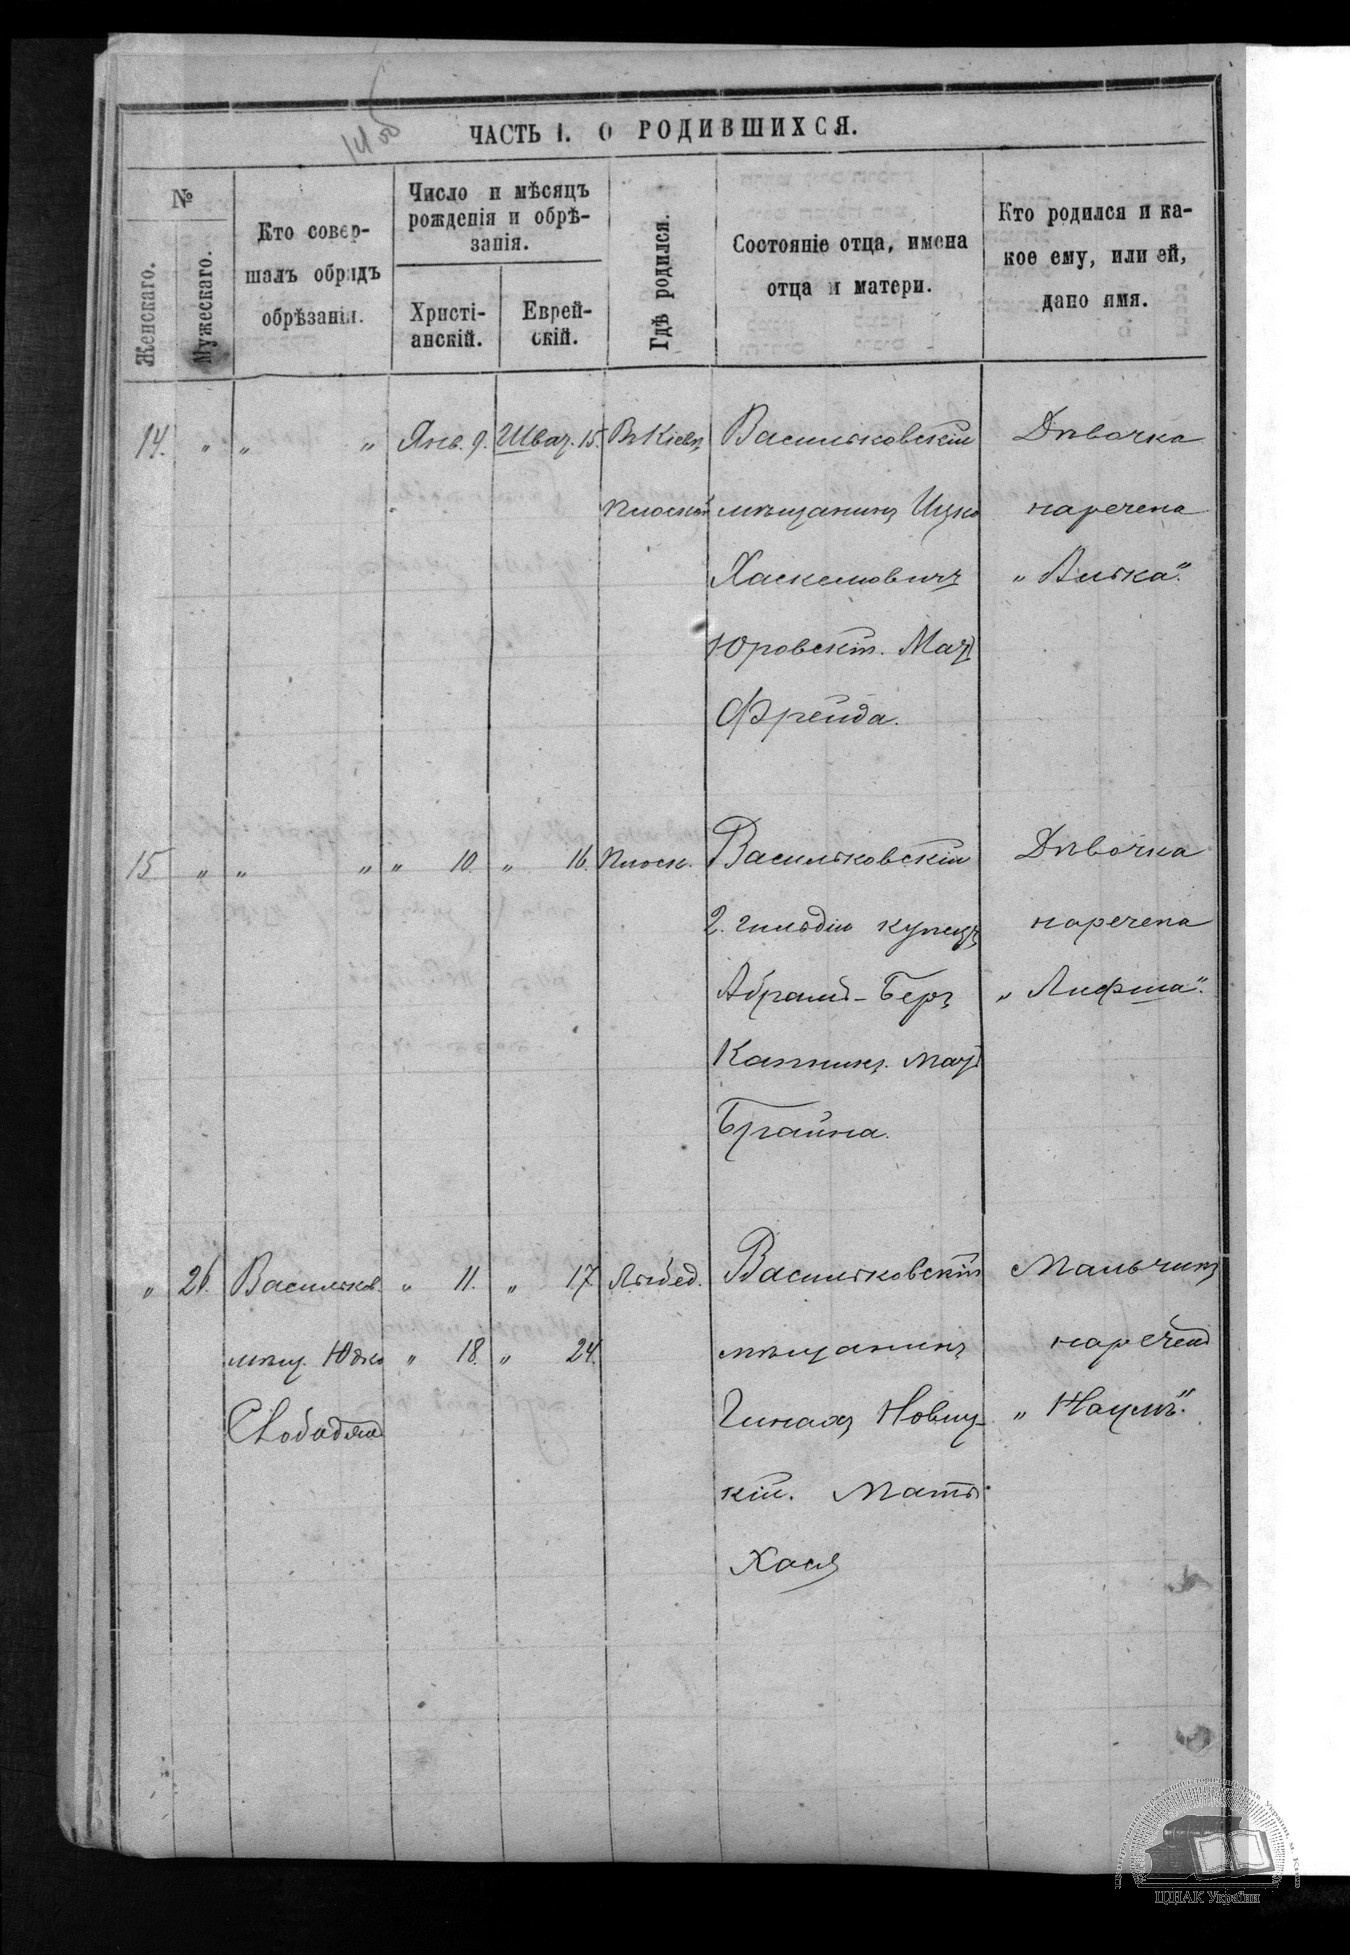 ЧАСТЬ I. О РОДИВШИХСЯ.
№
Женскаго.
Мужескаго.
Кто совер-
шалъ обрядъ
обрѣзанія.
Число и мѣсяцъ
рожденія и обрѣ-
занія.
Христі-
анскій.
Еврей-
скій.
Гдѣ родился.
Состояніе отца, имена
отца и матери.
Кто родился и ка-
кое ему, или ей,
дано имя.
14. " " " Янв. 9. Шват. 15. Въ Кіевѣ Васильковскій Дѣвочка
Плоской мѣщанинъ Ицко наречена
Хаскелевичъ „Вилька".
Юровскій. Мать
Фрейда.
15 " " " " 10. " 16. Плоск. Васильковскій Дѣвочка
2. гильдіи купецъ наречена
Абрамъ-Беръ „Лифша".
Каплинъ. Мать
Брайна.
" 26. Васильков. " 11. " 17 Лыбед. Васильковскій Мальчикъ
мѣщ. Юдко " 18. " 24. мѣщанинъ нареченъ
Новиц- „Наумъ".
кій. Мать
Хася
ЦДІАК України